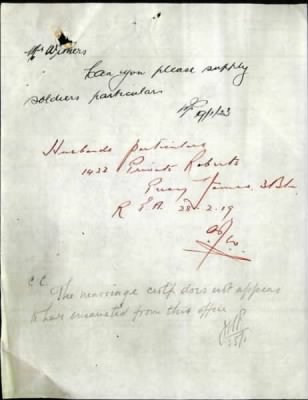 Mr Wimers
Can you please supply
soldiers particulars
19/1/23
Husbands particulars
1422 Private Roberts
Percy James 3 Bn
R E A 28.2.19
C C
The marriage certf does not appears
to have emanated from this office